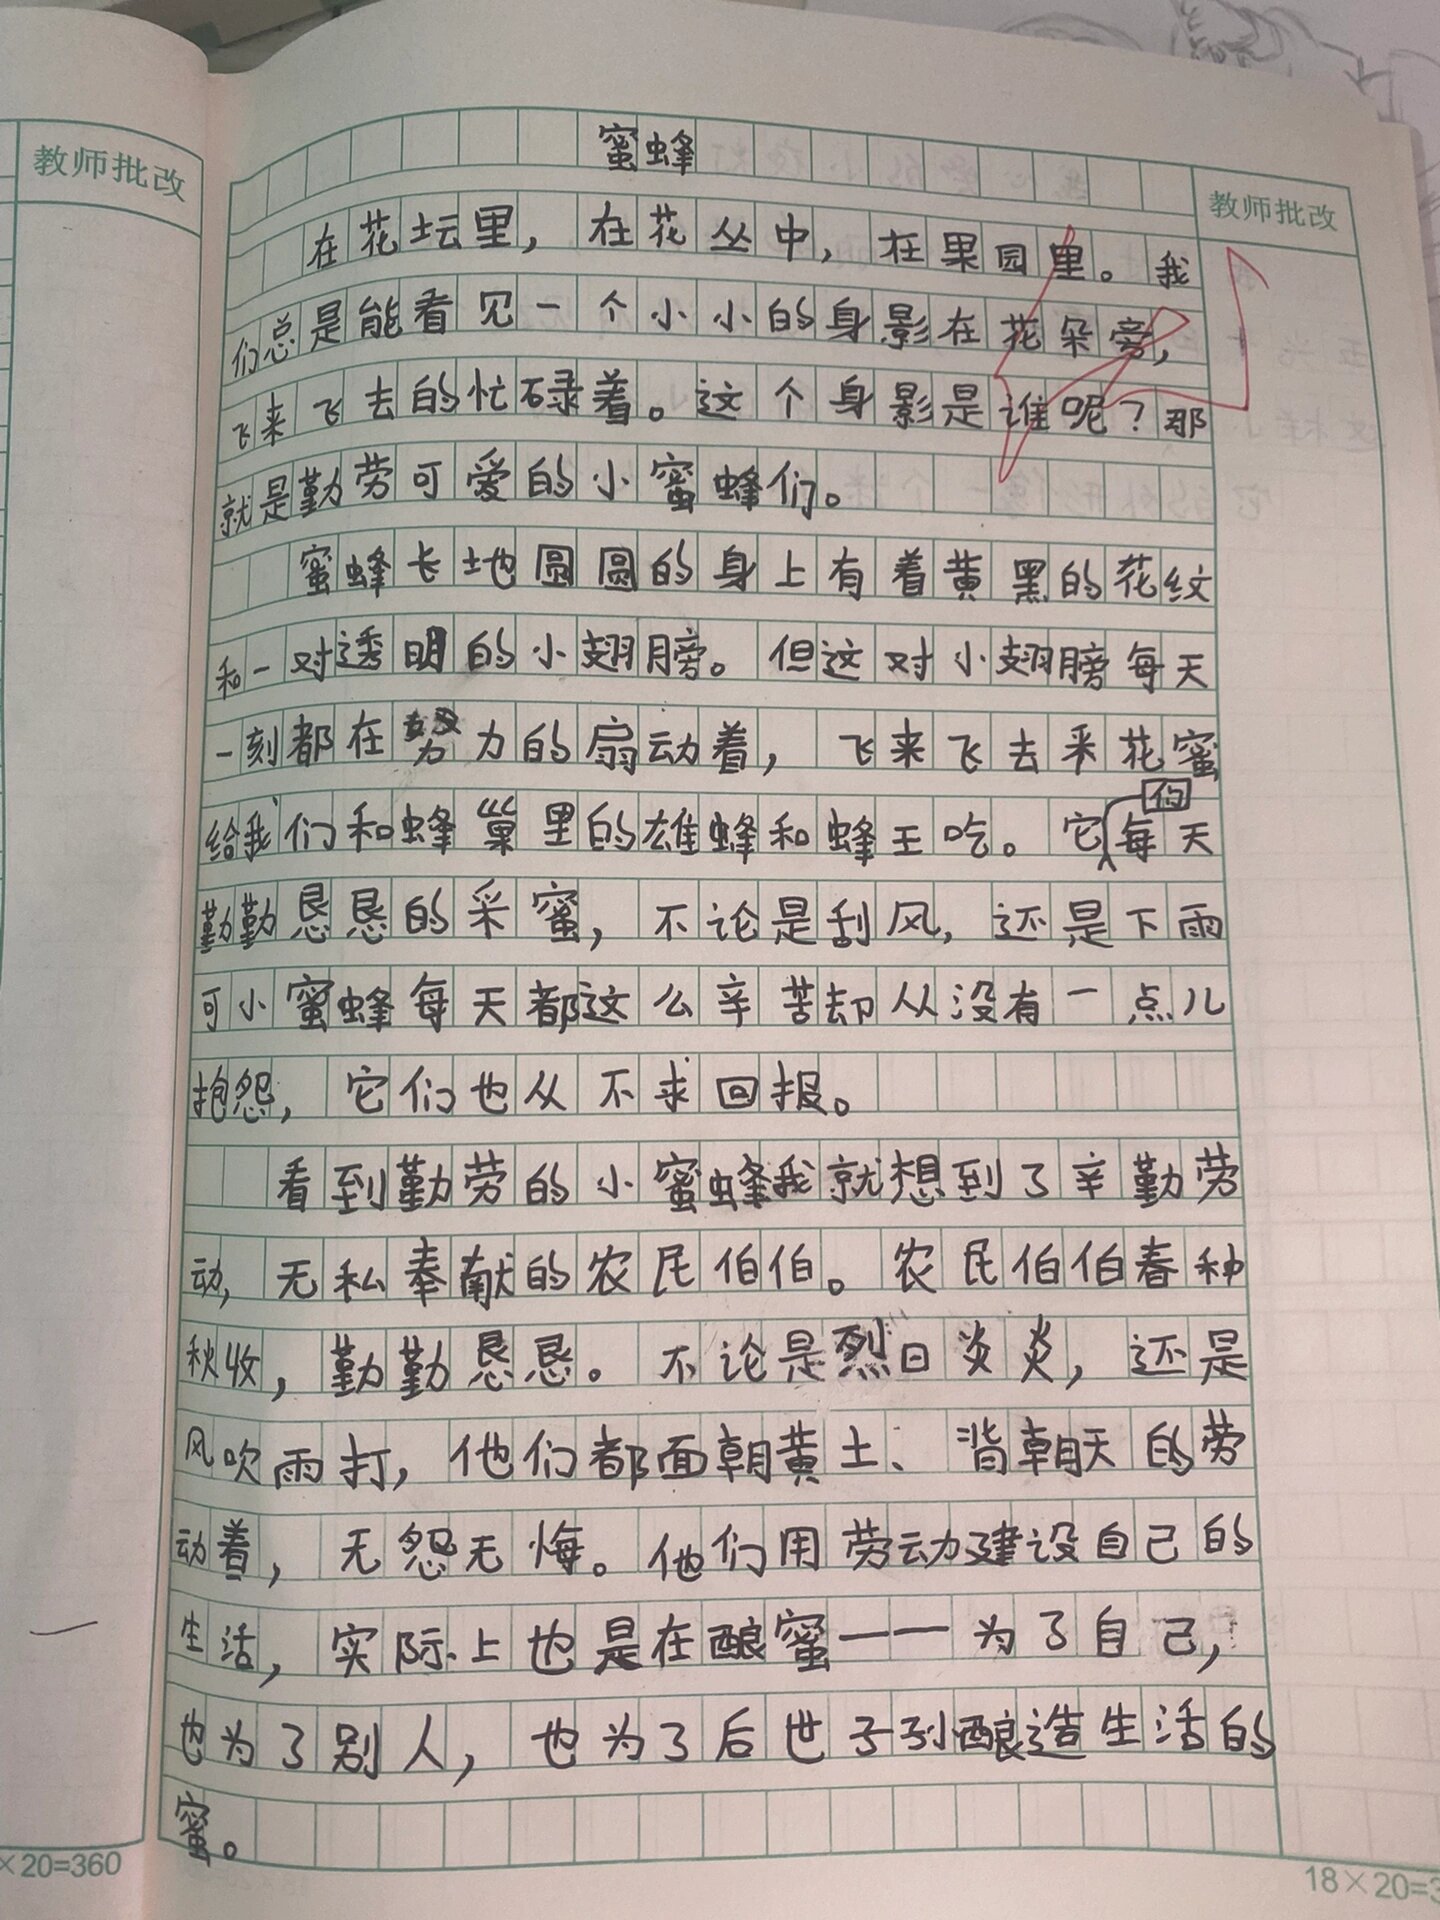 教师批改
蜜蜂
教师批改
在花坛里，在花丛中，在果园里。我
们总是能看见一个小小的身影在花朵旁，
飞来飞去的忙碌着。这个身影是谁呢？那
就是勤劳可爱的小蜜蜂们。
蜜蜂长地圆圆的身上有着黄黑的花纹
和一对透明的小翅膀。但这对小翅膀每天
一刻都在努力的扇动着，飞来飞去采花蜜
给我们和蜂巢里的雄蜂和蜂王吃。它们每天
勤勤恳恳的采蜜，不论是刮风，还是下雨
可小蜜蜂每天都这么辛苦却从没有一点儿
抱怨，它们也从不求回报。
看到勤劳的小蜜蜂我就想到了辛勤劳
动，无私奉献的农民伯伯。农民伯伯春种
秋收，勤勤恳恳。不论是烈日炎炎，还是
风吹雨打，他们都面朝黄土、背朝天的劳
动着，无怨无悔。他们用劳动建设自己的
生活，实际上也是在酿蜜——为了自己，
也为了别人，也为了后世子孙酿造生活的
蜜。
×20=360
18×20=3